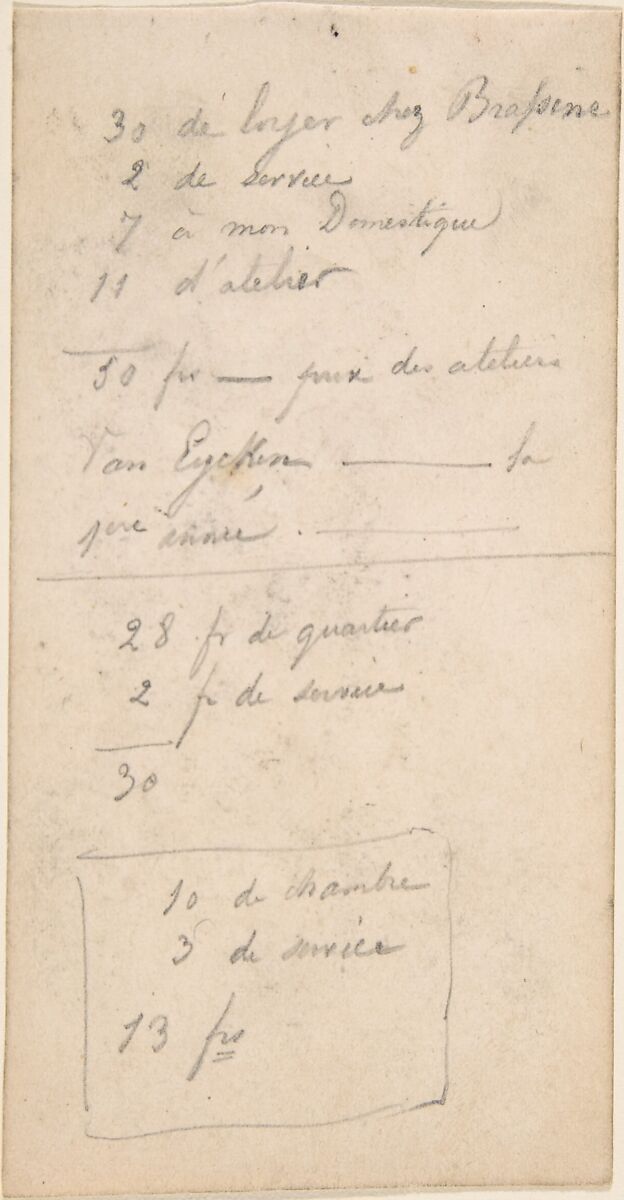 30 de loyer chez Brassine
2 de service
7 à mon Domestique
11 d'atelier
50 frs — prix des ateliers
Van Eycken ——— la
1ere année . ———
28 fr de quartier
2 fr de service
30
10 de chambre
3 de service
13 frs